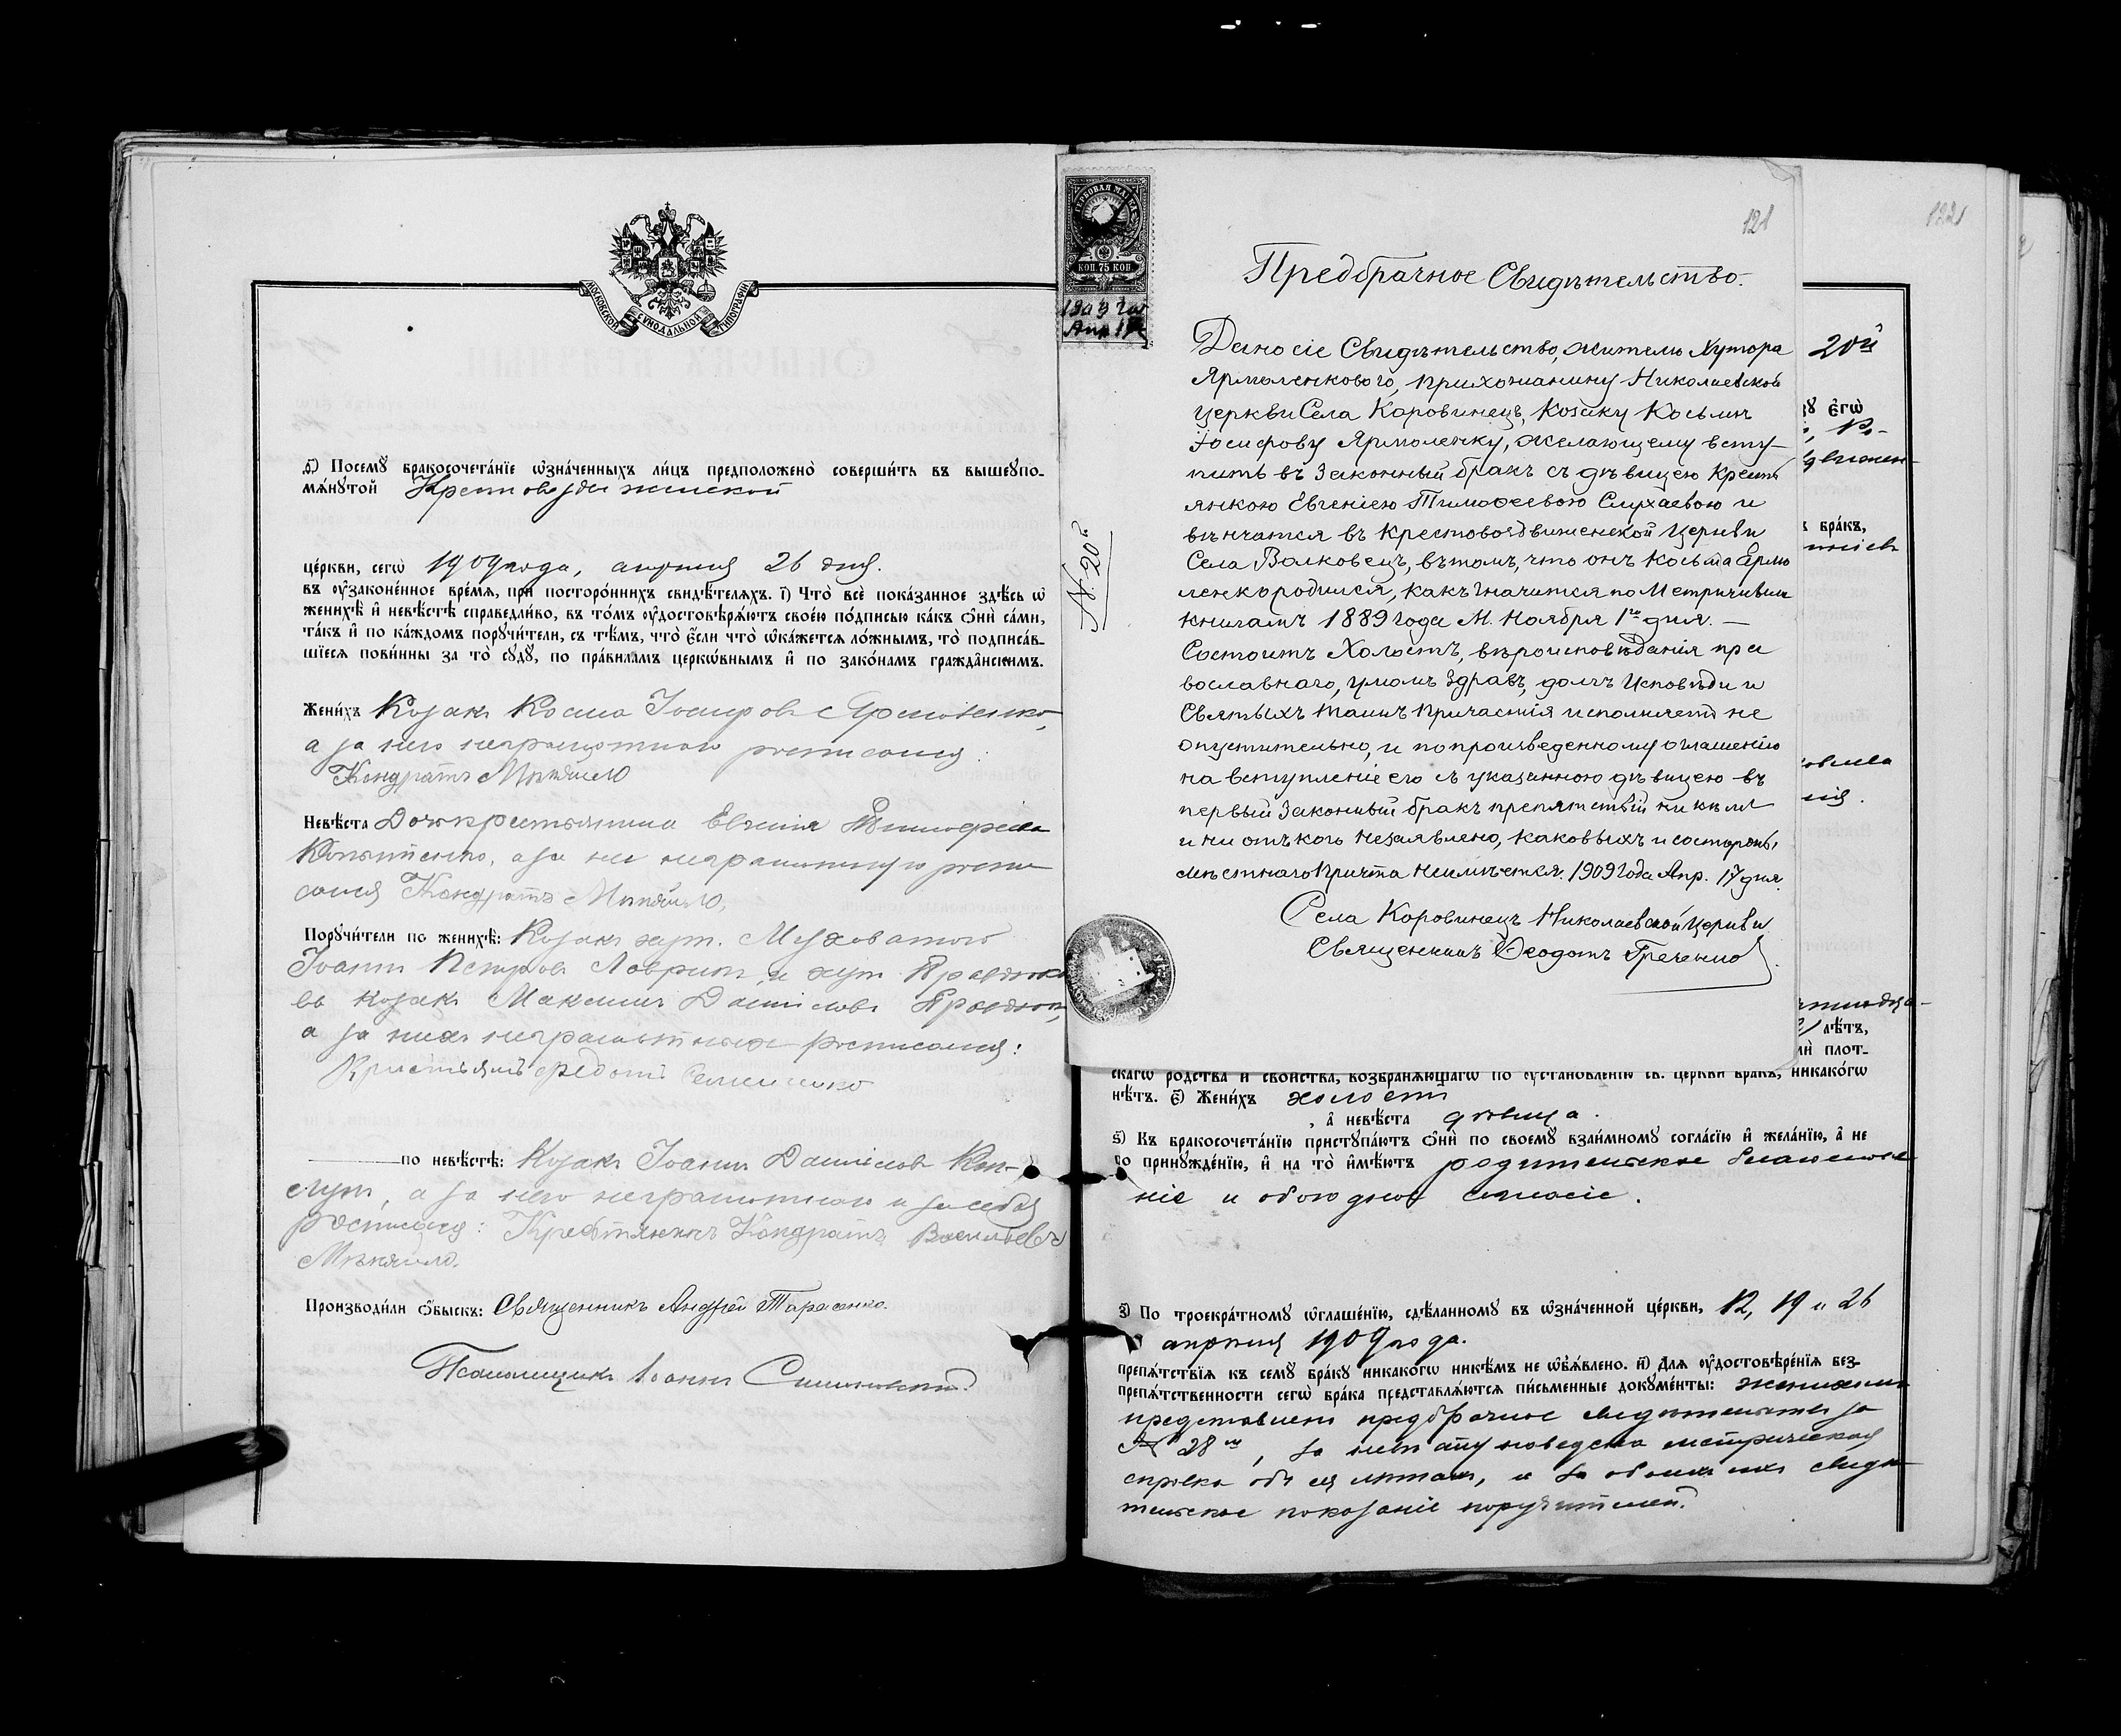 МОСКОВСКОЙ СУНОДАЛЬНОЙ ТИПОГРАФІИ
д҃) Посемꙋ̀ бракосочета́нїе ѡ҆зна́ченныхъ ли́цъ предположено̀ соверши́ть въ вышеꙋпо-
мѧ́нꙋтой Крестовоздвиженской
це́ркви, сегѡ̀ 1909 года, апрѣля 26 дня.
въ ᲂу҆законе́нное вре́мѧ, прѝ посторо́ннихъ свидѣ́телѧхъ. і҃) Что̀ всѐ пока́занное здѣ́сь ѡ҆
женихѣ̀ и҆ невѣ́стѣ справедли́во, въ то́мъ ᲂу҆достовѣрѧ́ютъ свое́ю по́дписью ка́къ ѻ҆нѝ са́ми,
та́къ и҆ по ка́ждомъ порꙋчи́тели, съ тѣ́мъ, что̀ є҆́сли что̀ ѡ҆ка́жется ло́жнымъ, то̀ подписа́в-
шїесѧ пови́нны за то̀ сꙋдꙋ̀, по пра́виламъ церкѡ́внымъ и҆ по зако́намъ гражда̂нскимъ.
Жени́хъ Козакъ Косма Іосифовъ Ярмоленко,
а за него неграмотного росписался:
Кондратъ
Невѣ́ста Дочь крестьянина Евгенія Тимофеева
а за не неграмотную роспи
сался Кондратъ
Порꙋчи́тели по женихѣ̀: Козакъ хут. Мусховатого
Іоаннъ Петровъ Лавринъ, и хут.
въ козакъ Максимъ Даниловъ
а за нихъ неграмотныхъ росписался:
Крестьянинъ Федотъ Семененко
по невѣ́стѣ: Козакъ Іоаннъ Даниловъ
а за него неграмотного и за себя
росписался: Крестьянинъ Кондратъ Васильевъ
Производи́ли ѻ҆́быскъ: Священникъ Андрей Тарасенко.
Псаломщикъ Іоаннъ
ГЕРБОВАЯ МАРКА
КОП. 75 КОП
1909 год
Апр 17
№ 20й
121
Предбрачное Свидѣтельство.
Дано сіе Свидѣтельство, жителю Хутора
Ярмоленкового, прихожанину Николаевской
церкви Села Каровинецъ, Козаку Косьмѣ
Іосифову Ярмоленку, желающему всту-
пить въ Законный бракъ съ дѣвицею Кресть
янкою Евгеніею Тимофеевою Слухаевою и
вѣнчатся въ Крестовоздвиженской Церкви
Села Волковецъ, въ томъ, что онъ Косьма Ермо
ленко родился, какъ значится по Метричнымъ
книгамъ 1889 года М. Ноября 1го дня. —
Состоитъ Холостъ, вѣроисповѣданія пра
вославнаго, умомъ здравъ, долгъ Исповѣди и
Святыхъ Таинъ Причастія исполняетъ не
опустительно, и по произведенному оглашенію
на вступленіе его съ указанною дѣвицею въ
первый Законный бракъ препятствій ни кѣмъ
и ни отъ кого не заявлено, каковыхъ и со стороны
мѣстнаго Причта не имѣется. 1909 года Апр. 17 дня.
Села Каровинецъ Николаевской Церкви
Священникъ Феодотъ Греченко
1221
20й
є҆гѡ̀
бра́къ,
лѣ́тъ,
плот-
скагѡ родства̀ и҆ свойства̀, возбранѧ́ющагѡ по ᲂу҆становле́нїю св. це́ркви бра́къ, никако́гѡ
нѣ́тъ. є҃) Жени́хъ холостъ
, а҆ невѣ́ста дѣвица.
ѕ҃) Къ бракосочета́нїю пристꙋпа́ютъ ѻ҆нѝ по своемꙋ̀ взаи́мномꙋ согла́сїю и҆ жела́нїю, а҆ не
по принꙋжде́нїю, и҆ на то̀ и҆мѣ́ютъ родительское благослове
ніе и обоюдное согласіе.
з҃) По троекра́тномꙋ ѡ҆глаше́нїю, сдѣ́ланномꙋ въ ѡ҆зна́ченной це́ркви, 12, 19 и 26
апрѣля 1909 года.
препѧ́тствїѧ къ семꙋ̀ бра́кꙋ никако́гѡ никѣ́мъ не ѡ҆б̾ѧ́влено. и҃) Длѧ ᲂу҆достовѣре́нїѧ без-
препѧ́тственности сегѡ̀ бра́ка представлѧ́ются пи́сьменные докꙋме́нты: женихомъ
представлено предбрачное свидѣтельство за
№ 28м, за невѣсту наведена метрическая
справка объ ея лѣтахъ, и за обоихъ ихъ свидѣ
тельское показаніе поручителей.